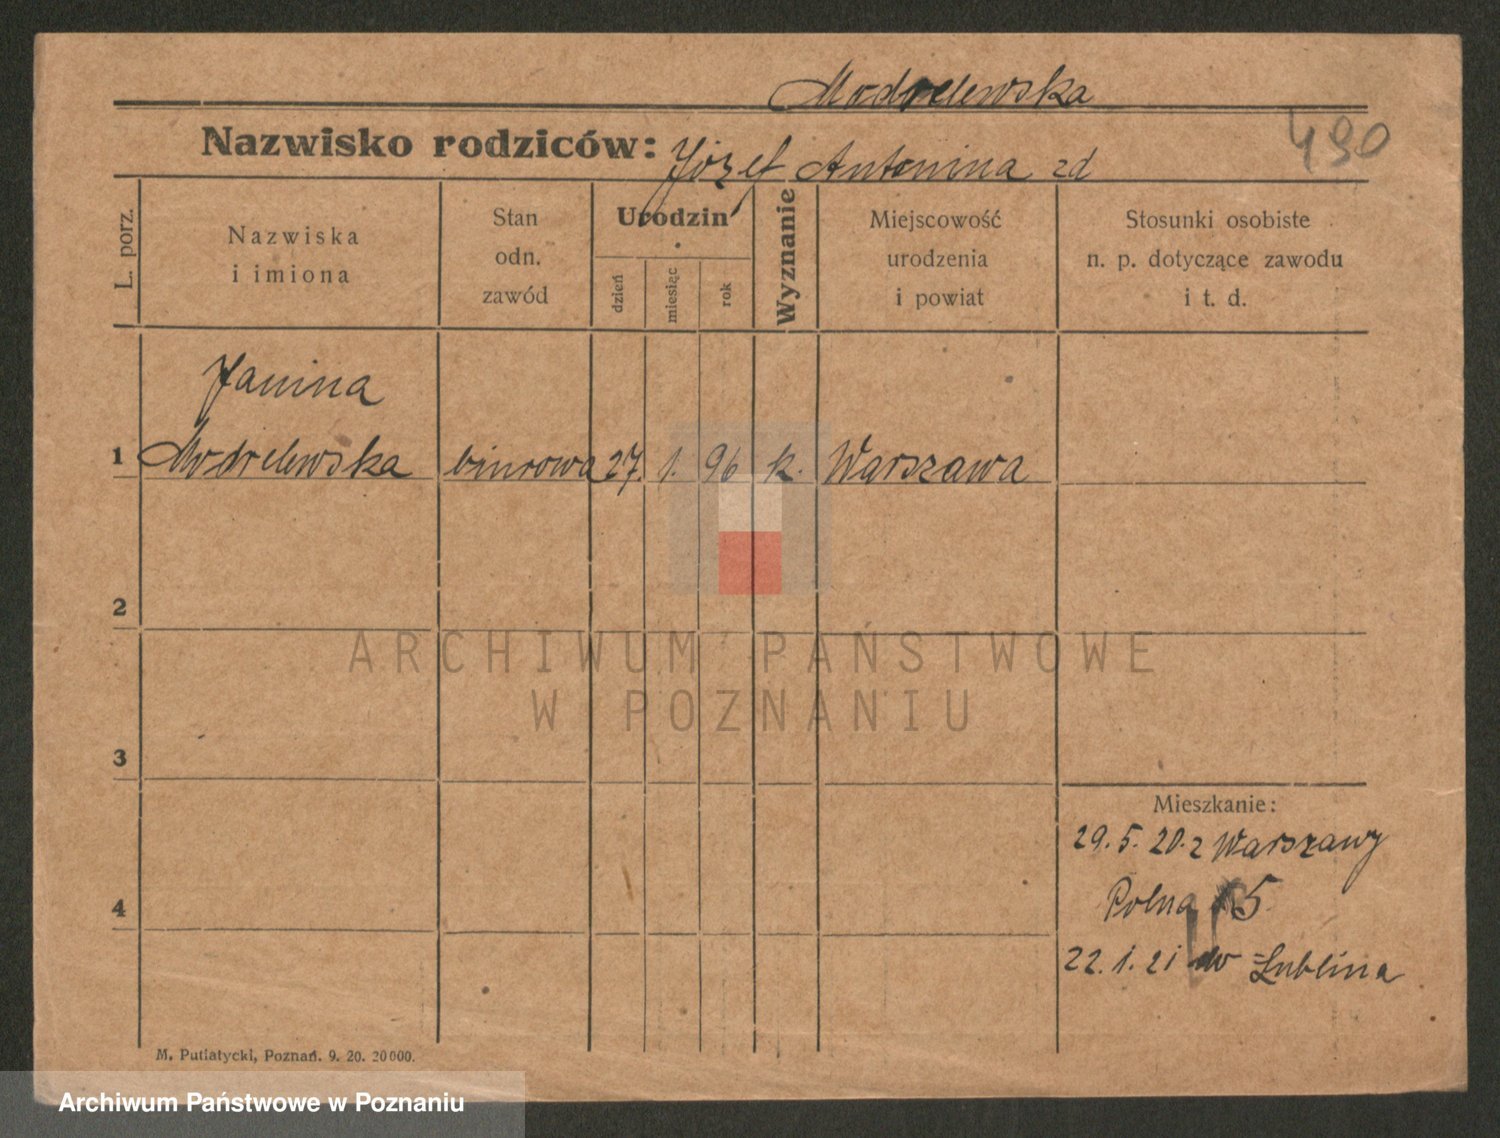 Modrelewska
490
Nazwisko rodziców: Józef Antonina zd
L. porz.
Nazwiska
i imiona
Stan
odn.
zawód
Urodzin
dzień
miesiąc
rok
Wyznanie
Miejscowość
urodzenia
i powiat
Stosunki osobiste
n. p. dotyczące zawodu
i t. d.
Janina
1 Modrelewska biurowa 27. 1. 96 k. Warszawa
2
ARCHIWUM PAŃSTWOWE
W POZNANIU
3
Mieszkanie:
29. 5. 20. z Warszawy
Polna 5
4
22. 1. 21 do Lublina
M. Putiatycki, Poznań. 9. 20. 20000.
Archiwum Państwowe w Poznaniu